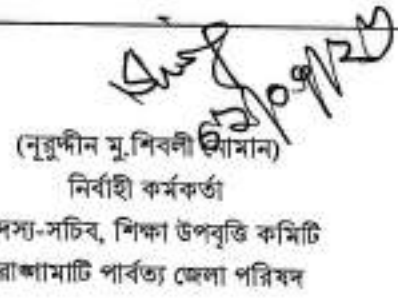 (নূরুদ্দীন মু.শিবলী নোমান)
নির্বাহী কর্মকর্তা
সদস্য-সচিব, শিক্ষা উপবৃত্তি কমিটি
রাঙ্গামাটি পার্বত্য জেলা পরিষদ